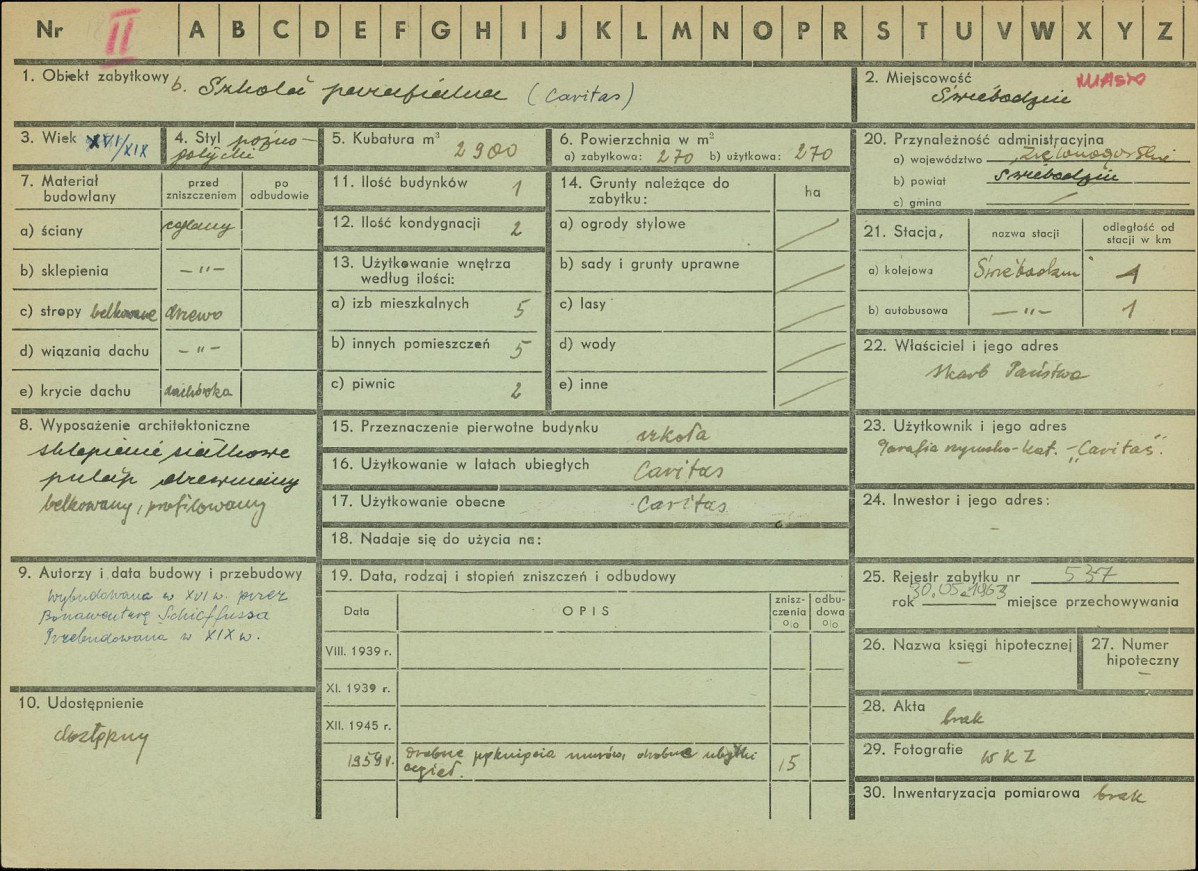 Nr II A B C D E F G H I J K L M N O P R S T U V W X Y Z
1. Obiekt zabytkowy b. Szkoła parafialna (Caritas)
2. Miejscowość MIASTO
Świebodzin
3. Wiek XVI/XIX
4. Styl późno-
gotycki
5. Kubatura m³ 2900
6. Powierzchnia w m²
a) zabytkowa: 270 b) użytkowa: 270
20. Przynależność administracyjna
a) województwo Zielonogórskie
b) powiat Świebodzin
c) gmina
7. Materiał budowlany
przed zniszczeniem
po odbudowie
a) ściany ceglany
b) sklepienia —"—
c) stropy belkowane drzewo
d) wiązania dachu —"—
e) krycie dachu dachówka
11. Ilość budynków 1
12. Ilość kondygnacji 2
13. Użytkowanie wnętrza
według ilości:
a) izb mieszkalnych 5
b) innych pomieszczeń 5
c) piwnic 2
14. Grunty należące do
zabytku:
ha
a) ogrody stylowe
b) sady i grunty uprawne
c) lasy
d) wody
e) inne
21. Stacja, nazwa stacji odległość od
stacji w km
a) kolejowa Świebodzin 1
b) autobusowa —"— 1
22. Właściciel i jego adres
Skarb Państwa
8. Wyposażenie architektoniczne
sklepienie siatkowe
pułap drewniany
belkowany, profilowany
15. Przeznaczenie pierwotne budynku szkoła
16. Użytkowanie w latach ubiegłych Caritas
17. Użytkowanie obecne Caritas
18. Nadaje się do użycia na:
23. Użytkownik i jego adres
Parafia rzymsko-kat. – „Caritas".
24. Inwestor i jego adres:
–
9. Autorzy i data budowy i przebudowy
Wybudowana w XVI w. przez
Bonawenturę Schieffussa
Przebudowana w XIX w.
10. Udostępnienie
dostępny
19. Data, rodzaj i stopień zniszczeń i odbudowy
Data OPIS znisz-
czenia
o|o odbu-
dowa
o|o
VIII. 1939 r.
XI. 1939 r.
XII. 1945 r.
1959 r. drobne pęknięcia murów, drobne ubytki
cegieł. 15
25. Rejestr zabytku nr 537
rok 30.05.1963 miejsce przechowywania
26. Nazwa księgi hipotecznej
–
27. Numer
hipoteczny
–
28. Akta brak
29. Fotografie WKZ
30. Inwentaryzacja pomiarowa brak